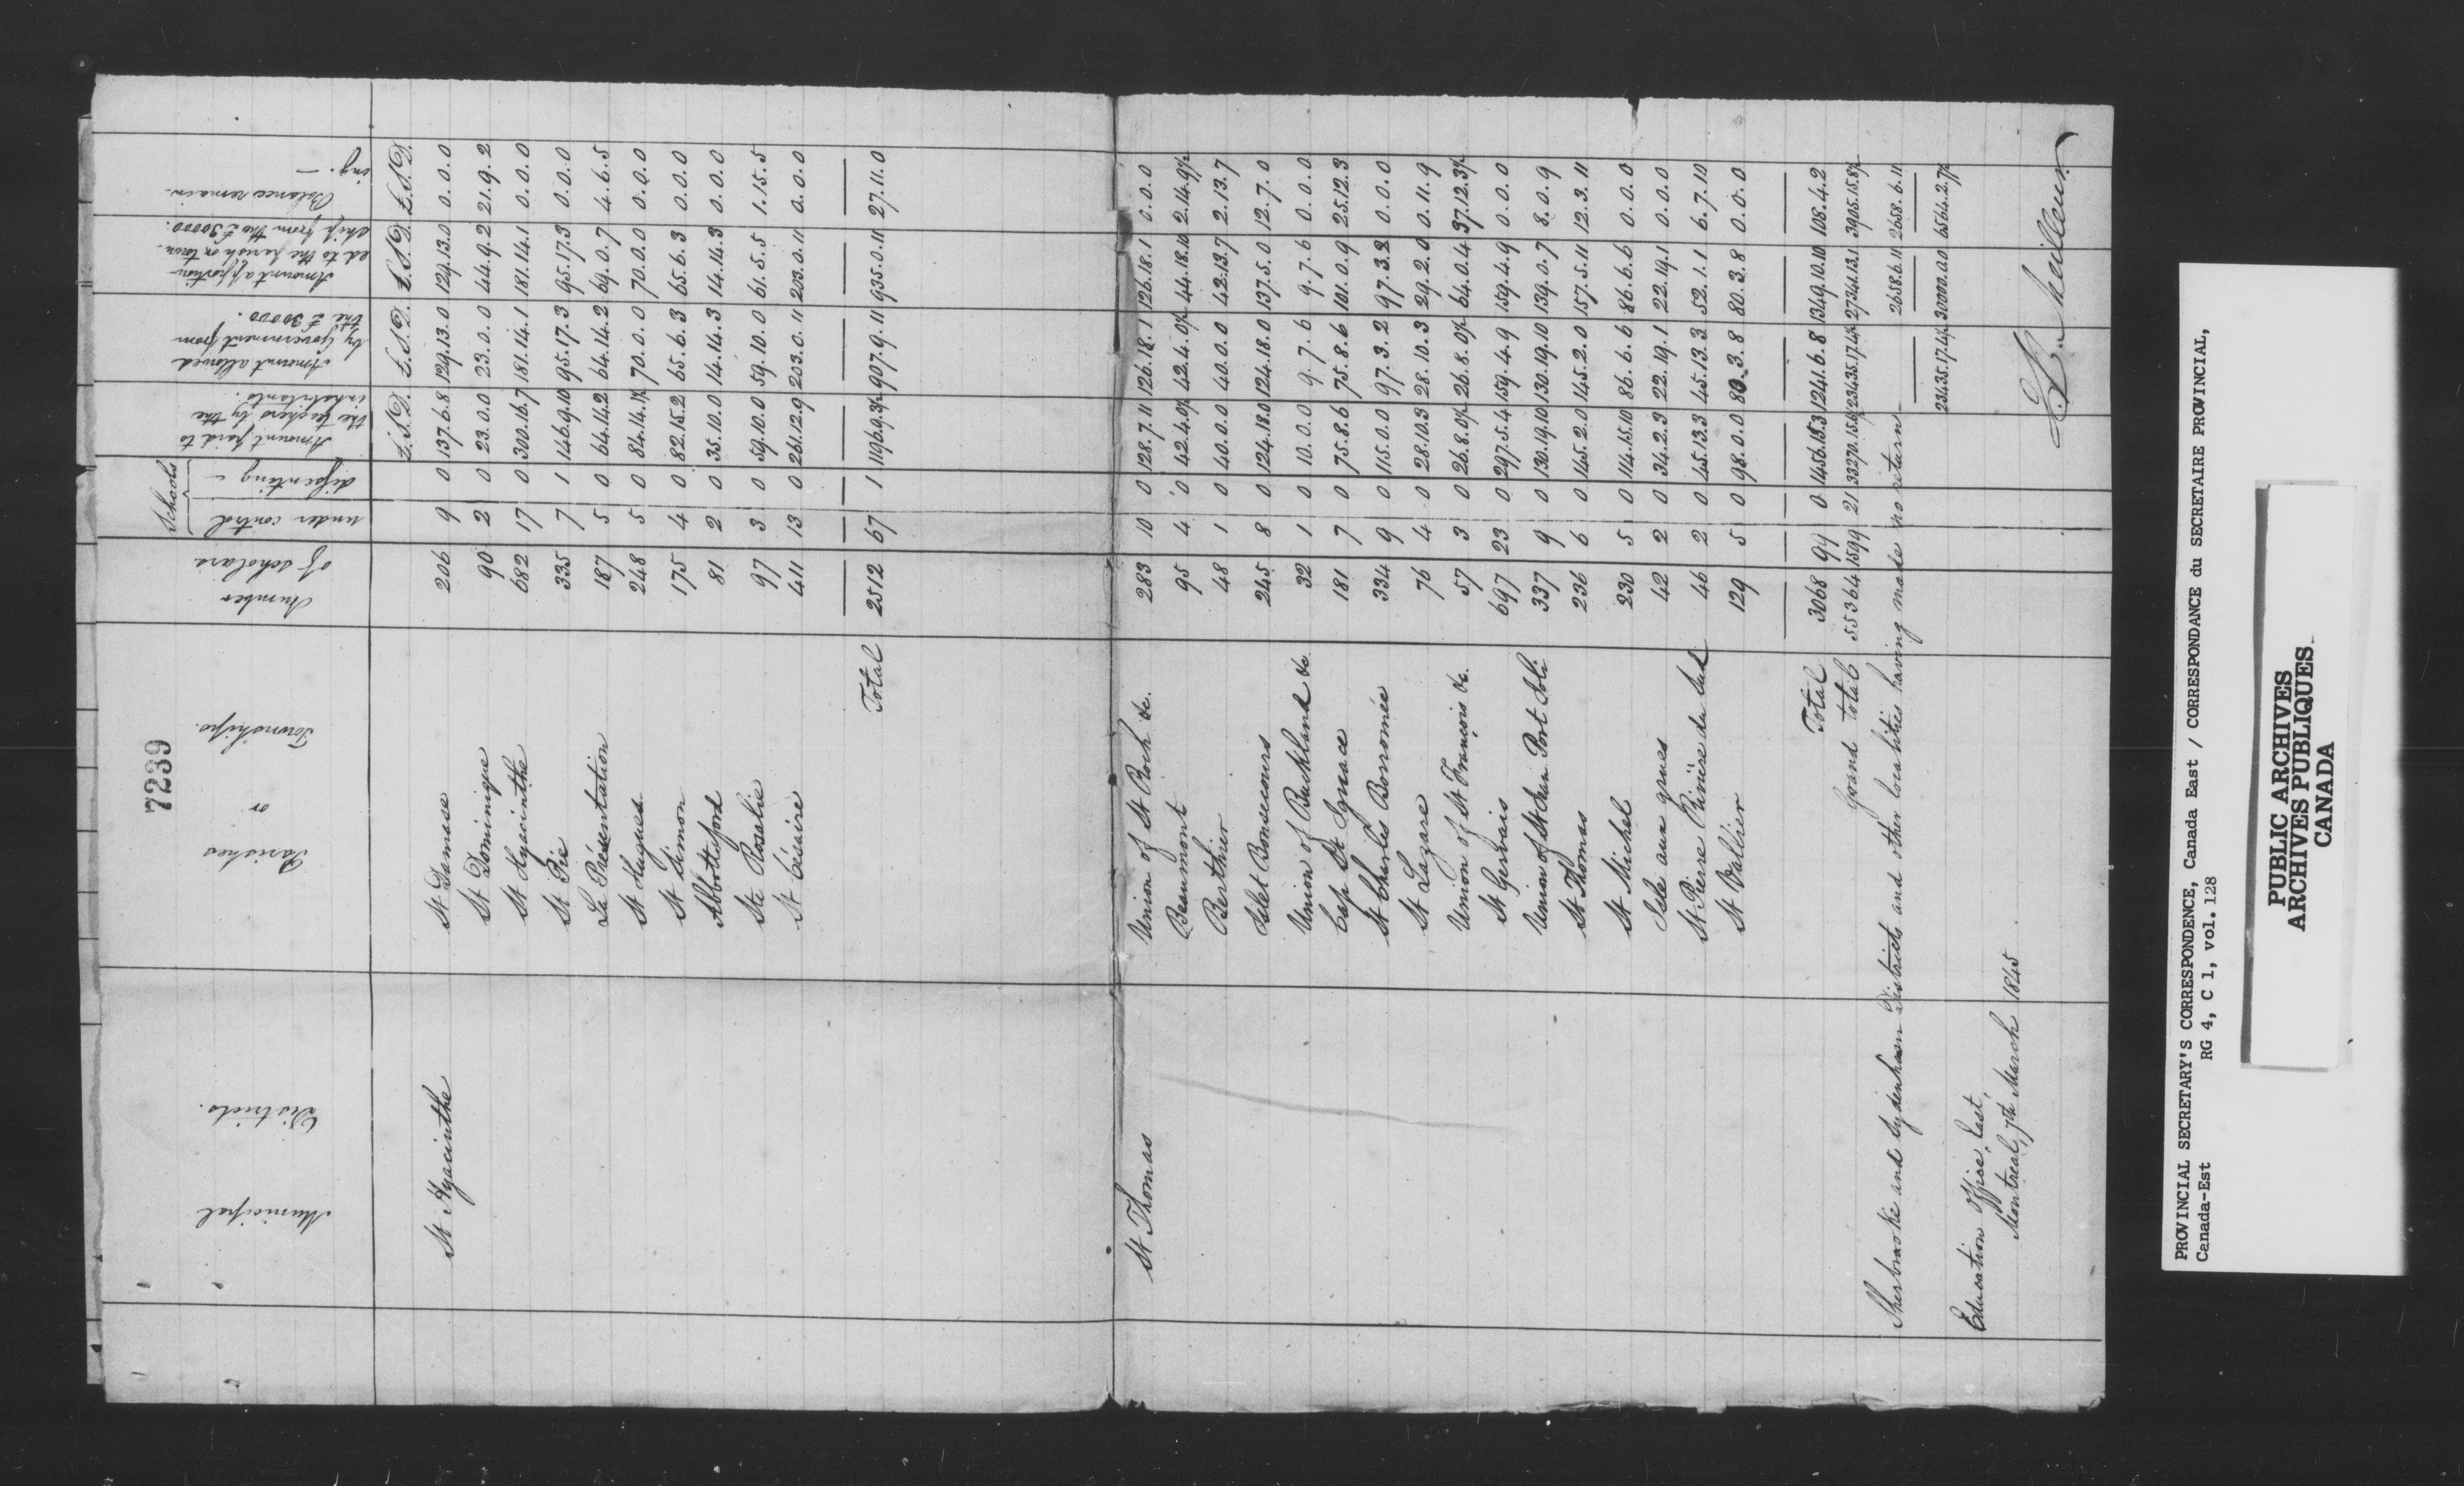 7239
Municipal Districts.
Parishes or Townships.
Number of scholars
Schools
under control
dissenting —
Amount paid to the teachers by the inhabitants.
Amount allowed by Government from the £30000.
Amount apportioned to the parish or township from the £30000.
Balance remaining. —
£. S. D. £. S. D. £. S. D. £. S. D.
St Hyacinthe St Damase 206 9 0 137.6.8 129.13.0 129.13.0 0.0.0
St Dominique 90 2 0 23.0.0 23.0.0 44.9.2 21.9.2
St Hyacinthe 682 17 0 300.16.7 181.14.1 181.14.1 0.0.0
St Pie 335 7 1 146.9.10 95.17.3 95.17.3 0.0.0
La Présentation 187 5 0 64.14.2 64.14.2 69.0.7 4.6.5
St Hugues 248 5 0 84.14.1½ 70.0.0 70.0.0 0.0.0
St Simon 175 4 0 82.15.2 65.6.3 65.6.3 0.0.0
Abbottsford 81 2 0 35.10.0 14.14.3 14.14.3 0.0.0
Ste Rosalie 97 3 0 59.10.0 59.10.0 61.5.5 1.15.5
St Césaire 411 13 0 261.12.9 203.0.11 203.0.11 0.0.0
Total 2512 67 1 1196.9.3½ 907.9.11 935.0.11 27.11.0
St Thomas Union of St Roch &c. 283 10 0 128.7.11 126.18.1 126.18.1 0.0.0
Beaumont 95 4 0 42.4.0½ 42.4.0½ 44.18.10 2.14.9½
Berthier 48 1 0 40.0.0 40.0.0 42.13.7 2.13.7
Islet Bonsecours 245 8 0 124.18.0 124.18.0 137.5.0 12.7.0
Union of Buckland &c. 32 1 0 10.0.0 9.7.6 9.7.6 0.0.0
Cap St Ignace 181 7 0 75.8.6 75.8.6 101.0.9 25.12.3
St Charles Borromée 334 9 0 115.0.0 97.3.2 97.3.2 0.0.0
St Lazare 76 4 0 28.10.3 28.10.3 29.2.0 0.11.9
Union of St François &c. 57 3 0 26.8.0½ 26.8.0½ 64.0.4 37.12.3½
St Gervais 697 23 0 297.5.4 159.4.9 159.4.9 0.0.0
Union of St Jean Port Joli 337 9 0 130.19.10 130.19.10 139.0.7 8.0.9
St Thomas 236 6 0 145.2.0 145.2.0 157.5.11 12.3.11
St Michel 230 5 0 114.15.10 86.6.6 86.6.6 0.0.0
Isle aux grues 42 2 0 34.2.3 22.19.1 22.19.1 0.0.0
St Pierre Rivière du Sud 46 2 0 45.13.3 45.13.3 52.1.1 6.7.10
St Vallier 129 5 0 98.0.0 80.3.8 80.3.8 0.0.0
Total 3068 99 0 1456.15.3 1241.6.8 1349.10.10 108.4.2
Grand total 55364 1599 21 33270.15.6½ 23435.17.4½ 27341.13.1 3905.15.8½
Sherbrooke and Sydenham Districts and other localities having made no return — 2658.6.11 2658.6.11
23435.17.4½ 30000.0.0 6564.2.7½
Education Office, East,
Montreal, 7th March 1845
J. B. Meilleur
PROVINCIAL SECRETARY'S CORRESPONDENCE, Canada East / CORRESPONDANCE du SECRETAIRE PROVINCIAL,
Canada-Est RG 4, C 1, vol. 128
PUBLIC ARCHIVES
ARCHIVES PUBLIQUES
CANADA